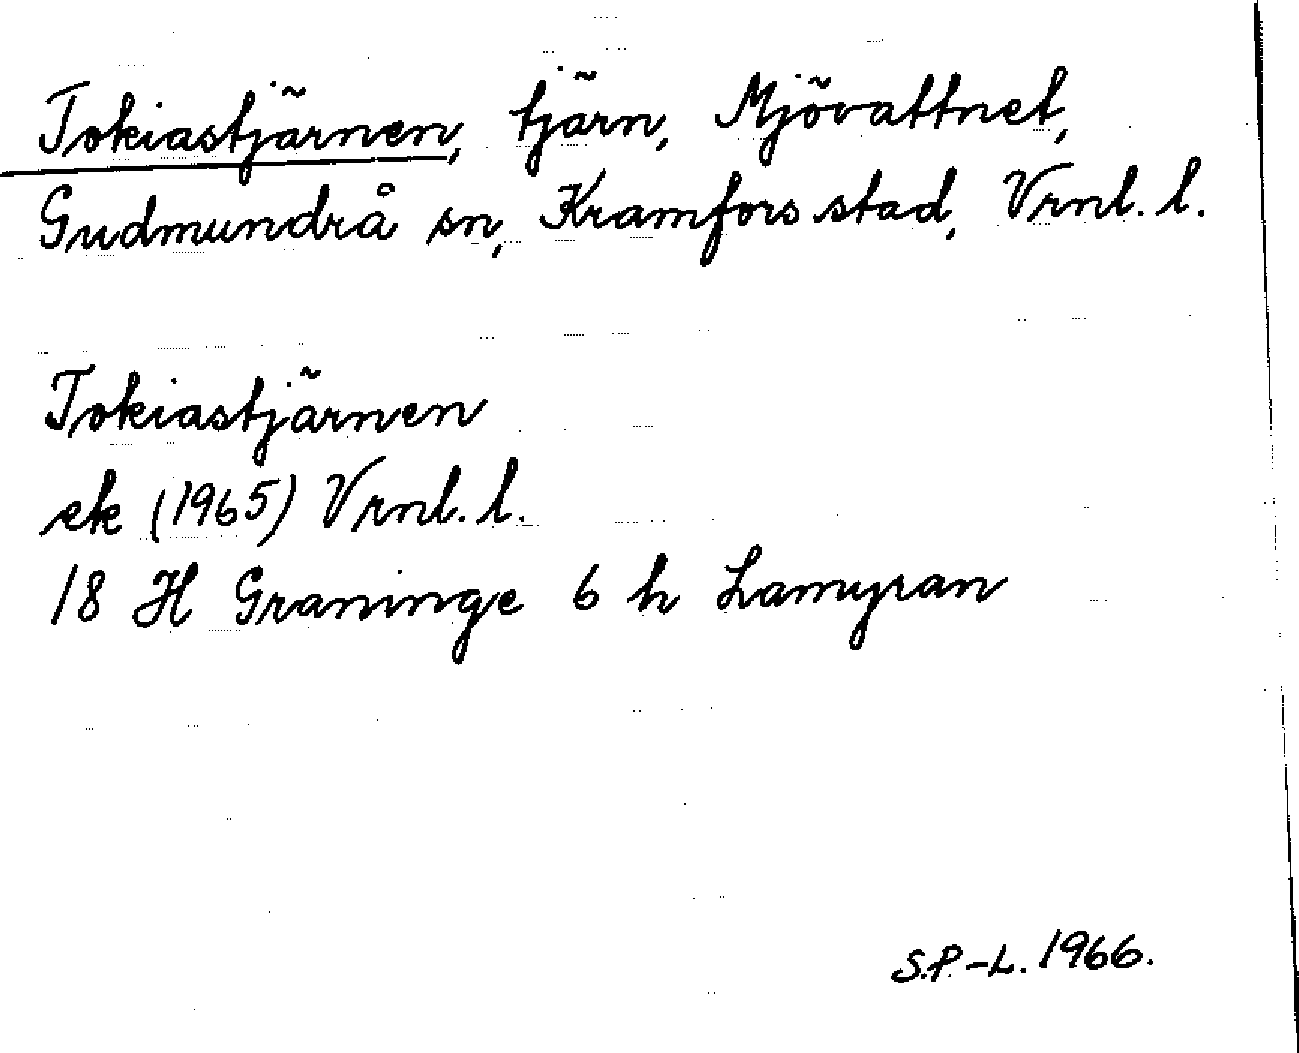 Tokiastjärnen, tjärn, Mjövattnet,
Gudmundrå sn, Kramfors stad, Vrnl. l.
Tokiastjärnen
ek (1965) Vrnl. l.
18 H Graninge 6 h Lamyran
S.P.-L. 1966.